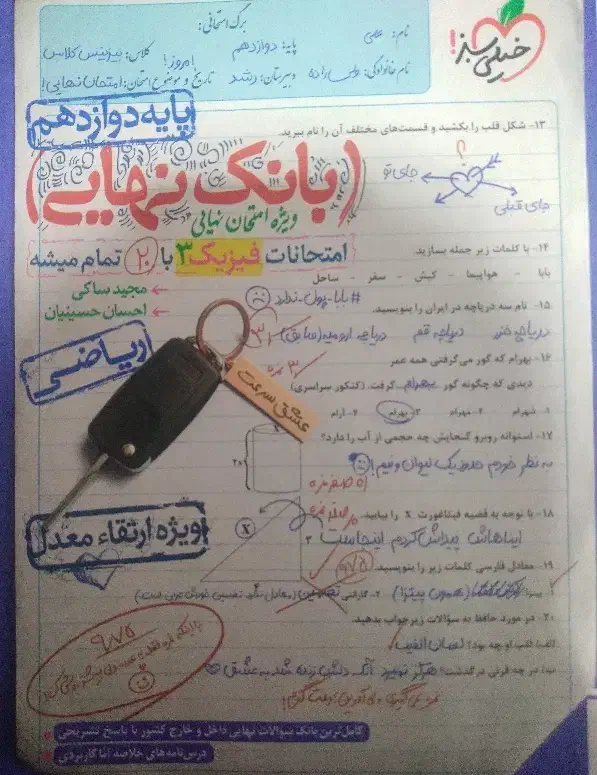 خیلی سبز!
برگ امتحانی:
نام: علی
پایه: دوازدهم
کلاس: بیزینس کلاس
نام خانوادگی:
دبیرستان: رشد
تاریخ و موضوع امتحان: امتحان نهایی!
امروز!
پایه دوازدهم
۱۳- شکل قلب را بکشید و قسمت‌های مختلف آن را نام ببرید.
جای تو
جای قبلی
؟
(بانک نهایی)
ویژه امتحان نهایی
امتحانات فیزیک ۳ با ۲۰ تمام میشه
مجید ساکی
احسان حسینیان
۱۴- با کلمات زیر جمله بسازید.
بابا - هواپیما - کیش - سفر - ساحل
#بابا_پول_نداره
۱۵- نام سه دریاچه در ایران را بنویسید.
دریاچه خزر دریاچه قم دریاچه ارومیه (سابق)
ریاضی
۱۶- بهرام که گور می‌گرفتی همه عمر
دیدی که چگونه گور بهرام گرفت. (کنکور سراسری)
۱. شهرام ۲. مهرام ۳. بهرام ۴. آرام
عشق سرعت
۱۷- استوانه روبرو گنجایش چه حجمی از آب را دارد؟
به نظر خودم حدود یک لیوان و نیم!
۱۸- با توجه به قضیه فیثاغورث X را بیابید.
ایناهاش پیداش کردم اینجاست
X
۳
ویژه ارتقاء معدل
۱۹- معادل فارسی کلمات زیر را بنویسید.
۱- پیتزا (همون پیتزا) ۲- گارانتی
۲۰- در مورد حافظ به سؤالات زیر جواب بدهید.
الف) لقب او چه بود؟ لسان الغیب
ب) در چه قرنی درگذشت؟ هرگز نمیرد آنکه دلش زنده شد به عشق
۹٫۷۵
کامل‌ترین بانک سوالات نهایی داخل و خارج کشور با پاسخ تشریحی
درس‌نامه‌های خلاصه اما کاربردی